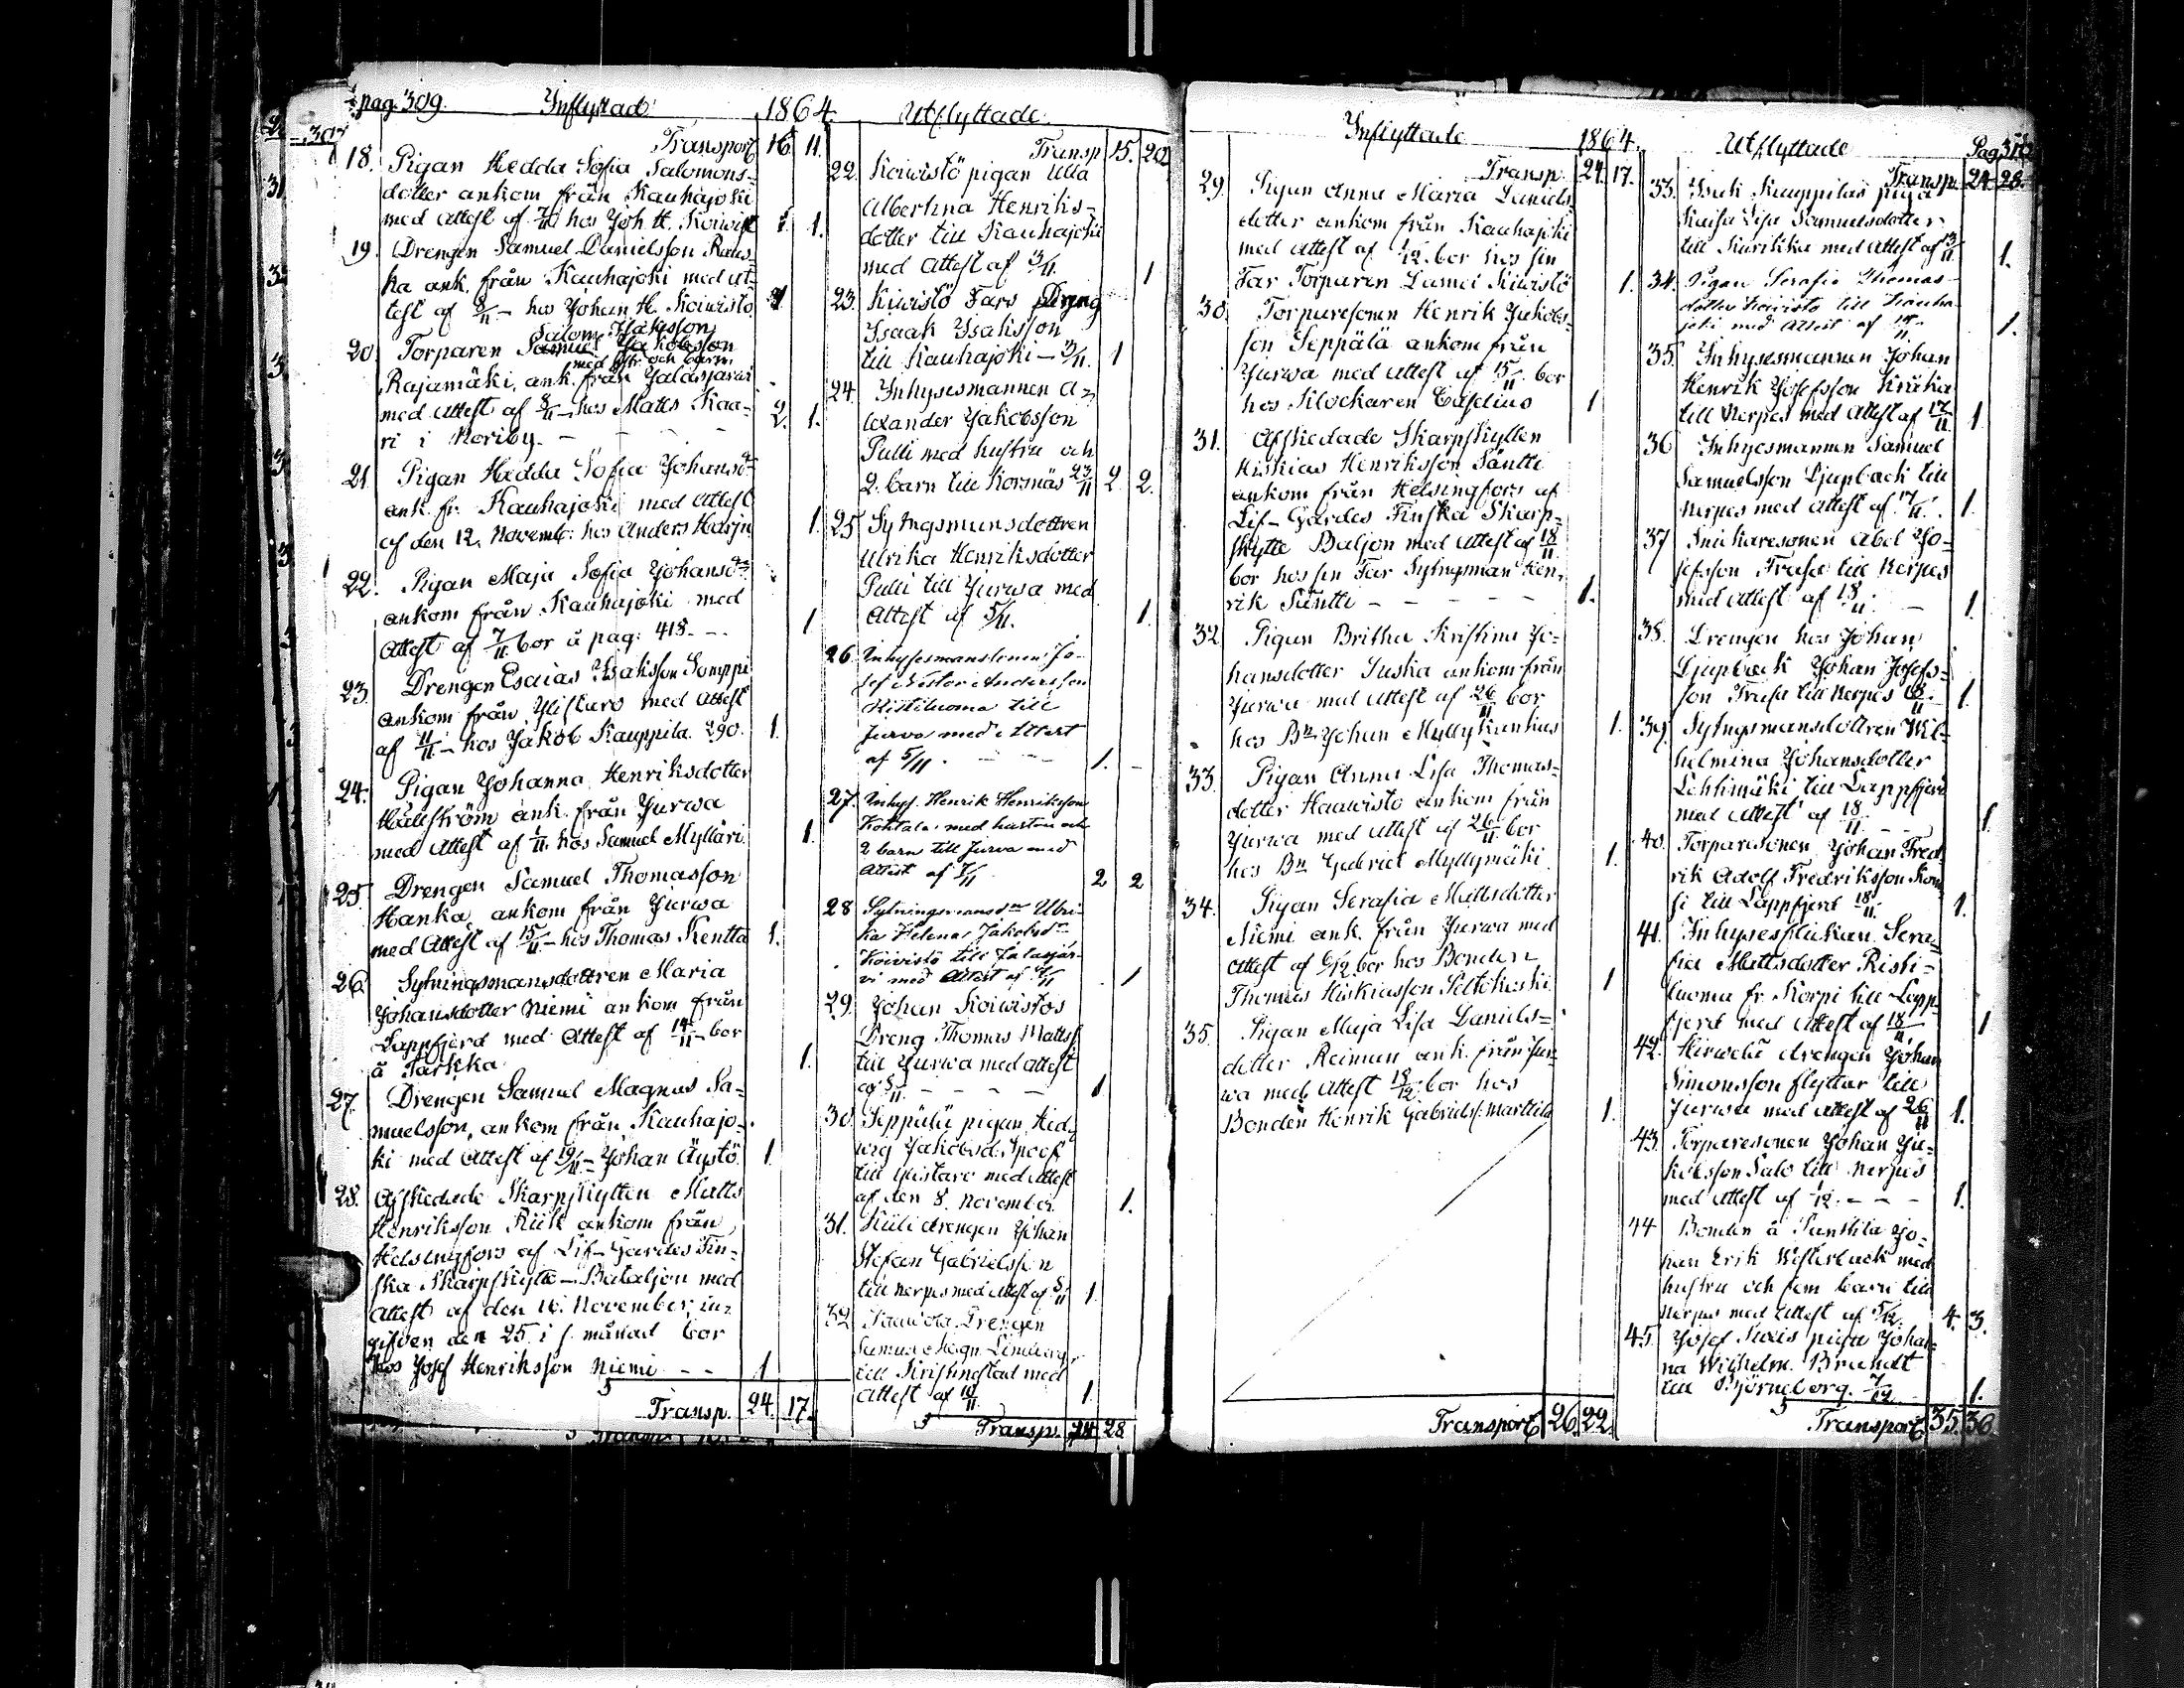 pag. 309. Inflyttad 1864. Utflyttade.
Transport 16 11.
18. Pigan Hedda Sofia Salomons-
dotter ankom från Kauhajoki
med Attest af hos Joh. H. Koiwist 1.
19. Drengen Samuel Danielsson
ka ank. från Kauhajoki med at-
test af 8/11 - hos Johan H. Koiwisto 1
Salom. Isaksson
20. Torparen Samuel Jakobsson
med hstr och barn
Rajamäki, ank. från Jalasjärwi
med Attest af 8/11 - hos Matts Kaa-
ri i Noriby - 2. 1.
21. Pigan Hedda Sofia Johansdr
ank. fr. Kauhajoki med Attest
af den 12. Novemb: hos Anders Harju 1.
22. Pigan Maja Sofia Johansdr
ankom från Kauhajoki med
Attest af 7/11 bor å pag: 418. - 1
23. Drengen Esaias Isaksson Somppi
ankom från Ylistaro med Attest
af 11/11 - hos Jakob Kauppila 290. 1.
24. Pigan Johanna Henriksdotter
Hällström ank. från Jurwa
med Attest af hos Samuel Mylläri 1.
25. Drengen Samuel Thomasson
Hanka, ankom från Jurwa
med Attest af 15/11 - hos Thomas Kentta 1.
26. Sytningsmansdottren Maria
Johansdotter Niemi ankom från
Lappfjerd med Attest af 14/11 - bor
å Parkka 1.
27. Drengen Samuel Magnus Sa-
muelsson, ankom från Kauhajo-
ki med Attest af 19/11 - Johan Äystö 1.
28. Afskedade Skarpskytten Matts
Henriksson Riik ankom från
Helsingfors af Lif-Gardes Fin-
ska Skarpskytte-Bataljon med
Attest af den 16. November, in-
gifven den 25. i s. månad bor
hos Josef Henriksson Niemi - - 1
Transp. 24. 17.
Transp. 15. 20
22. Koiwistö pigan Ulla
Albertina Henriks-
dotter till Kauhajoki
med Attest af 3/11. 1
23. Koiwistö Fars Dreng
Isaak Isaksson
till Kauhajoki - 3/11. 1
24. Inhysesmannen A-
lexander Jakobsson
Pulli med hustru och
2. barn till Korsnäs 23/11 2 2.
25. Sytngsmansdottren
Ulrika Henriksdotter
Pulli till Jurwa med
Attest af 5/11. 1.
26. Inhysesmanssonen Jo-
sef Nestor Andersson
Ristiluoma till
Jurva med Attest
af 5/11. - - - 1. -
27. Inhys. Henrik Henriksson
Kohtala med hustru och
2 barn till Jurva med
Attest af 7/11 2 2
28 Sytningsmansdn Ulri-
ka Helena Jakobsdr
Koivistö till Jalasjär-
vi med Attest af 1
29. Johan Koiwistos
Dreng Thomas Mattss
till Jurwa med Attest
af 8/11. - - - - 1
30. Seppälä pigan Hed-
wig Jakobsd. Spoof
till Ylistaro med Attest
af den 8. November. 1.
31. Kiili drengen Johan
Stefan Gabrielsson
till Nerpes med Attest af 8/11 1.
32. Drengen
Samuel Magn. Lindberg
till Kristinestad med
Attest af 10/11 1.
Transp. 24. 28
Inflyttade 1864. Utflyttade Pag.
Transp. 24. 17.
29. Pigan Anna Maria Daniels
dotter ankom från Kauhajoki
med Attest af 1/12. bor hos sin
Far Torparen Koiwistö 1.
30. Torparesonen Henrik Jakobs-
son Seppälä ankom från
Jurwa med Attest af 15/11. bor
hos Klockaren Caselius 1
31. Afskedade Skarpskytten
Hiskias Henriksson Säntti
ankom från Helsingfors af
Lif-Gardes Finska Skarp-
skytte Baljon med Attest af 18/11.
bor hos sin Far Sytngsman Hen-
rik Säntti - - - - - 1.
32. Pigan Britha Kristina Jo-
hansdotter Suska ankom från
Jurwa med Attest af 26/11 bor
hos Bn Johan Myllykankas 1.
33. Pigan Anna Lisa Thomas-
dotter Hauwisto ankom från
Jurwa med Attest af 26/11 bor
hos Bn Gabriel Myllymäki 1.
34. Pigan Serafia Mattsdotter
Niemi ank. från Jurwa med
Attest af 6/12 bor hos Bonden
Thomas Hiskiasson Peltokoski 1
35. Pigan Maja Lisa Daniels-
dotter Reiman ank. från Jur-
wa med Attest 18/12. bor hos
Bonden Henrik Gabrielss: Marttila 1.
Transport 26. 22.
Transp. 24. 28.
33. Isak Kauppilas piga
Kaisa Lisa Samuelsdotter
till Kurikka med Attest af 13/11 1.
34. Pigan Serafia Thomas-
dotter Koivisto till Kauha-
joki med Attest af 1.
35. Inhysesmannen Johan
Henrik Josefsson Kräkä
till Nerpes med Attest af 17/11 1
36 Inhysesmannen Samuel
Samuelsson Djupback till
Nerpes med Attest af 17/11. 1.
37 Snickaresonen Abel Jo-
sefsson Frasa till Nerpes
med Attest af 18/11. - 1
38. Drengen hos Johan
Djupback Johan Josefs-
son Frasa till Nerpes 18/11. 1.
39. Sytngsmansdottren Wil-
helmina Johansdotter
Lehtimäki till Lappfjerd
med Attest af 18/11. - - 1.
40. Torparesonen Johan Fred-
rik Adolf Fredriksson
si till Lappfjerd 18/11. 1.
41. Inhysesflickan Sera-
fia Mattsdotter Risti-
luoma fr. Korpi till Lapp-
fjerd med Attest af 18/11 1
42. Hirwelä drengen Johan
Simonsson flyttar till
Jurwa med Attest af 26/11 1.
43. Torparesonen Johan Ja-
kobsson Salo till Nerpes
med Attest af 1/12. - - - 1.
44 Bonden å Panttila Jo-
han Erik Westerback med
hustru och fem barn till
Nerpes med Attest af 5/12. 4. 3.
45. Josef piga Johan-
na Wilhelm. Brandt
till Björneborg. 7/12 1.
Transport 35. 36.